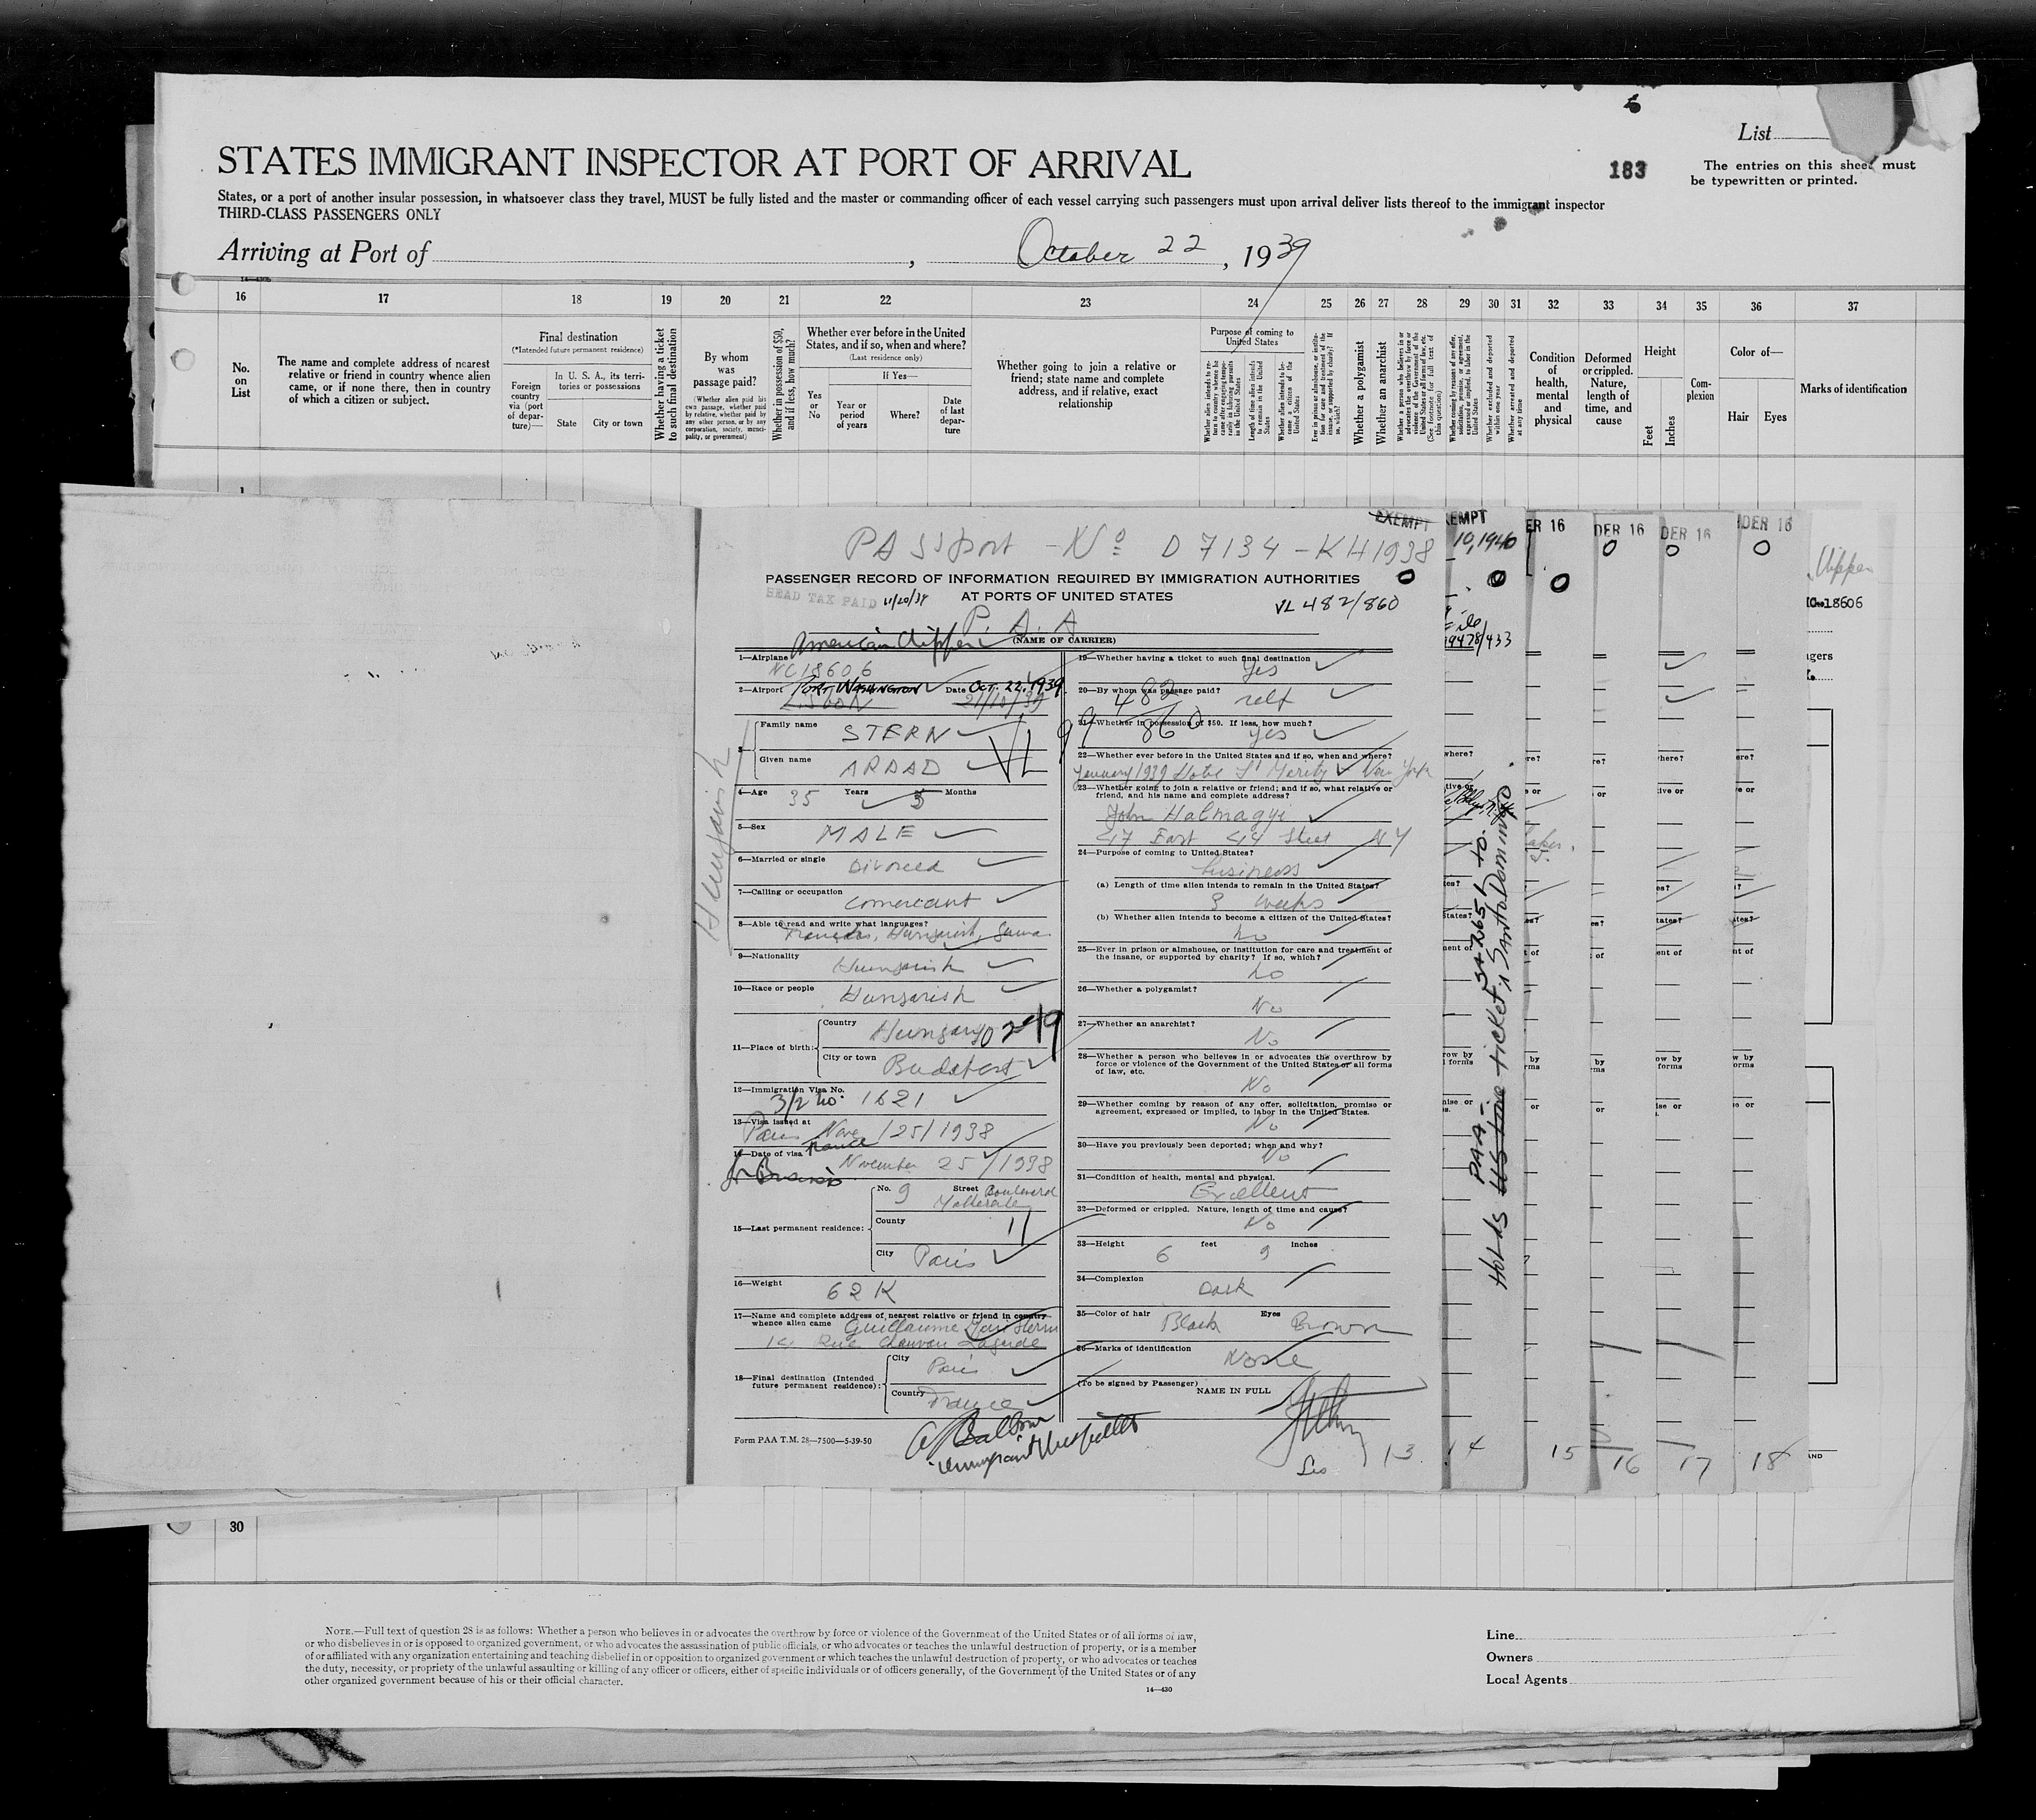 5
List
STATES IMMIGRANT INSPECTOR AT PORT OF ARRIVAL
183
The entries on this sheet must
be typewritten or printed.
States, or a port of another insular possession, in whatsoever class they travel, MUST be fully listed and the master or commanding officer of each vessel carrying such passengers must upon arrival deliver lists thereof to the immigrant inspector
THIRD-CLASS PASSENGERS ONLY
Arriving at Port of , October 22 , 1939
16 17 18 19 20 21 22 23 24 25 26 27 28 29 30 31 32 33 34 35 36 37
No. on List
The name and complete address of nearest relative or friend in country whence alien came, or if none there, then in country of which a citizen or subject.
Final destination
(*Intended future permanent residence)
Foreign country via (port of departure)—
In U. S. A., its territories or possessions
State City or town
Whether having a ticket to such final destination
By whom was passage paid?
(Whether alien paid his own passage, whether paid by relative, whether paid by any other person, or by any corporation, society, municipality, or government)
Whether in possession of $50, and if less, how much?
Whether ever before in the United States, and if so, when and where?
(Last residence only)
If Yes—
Yes or No
Year or period of years
Where?
Date of last departure
Whether going to join a relative or friend; state name and complete address, and if relative, exact relationship
Purpose of coming to United States
Length of time alien intends to remain in the United States
Whether alien intends to become a citizen of the United States
Whether a polygamist
Whether an anarchist
Whether excluded and deported within one year
Whether arrested and deported at any time
Condition of health, mental and physical
Deformed or crippled. Nature, length of time, and cause
Height
Feet Inches
Complexion
Color of—
Hair Eyes
Marks of identification
1
EXEMPT
PASSport - No D 7134 - KH1938
PASSENGER RECORD OF INFORMATION REQUIRED BY IMMIGRATION AUTHORITIES
AT PORTS OF UNITED STATES
HEAD TAX PAID
VL 482/860
P. A. A
American Clipper
(NAME OF CARRIER)
1—Airplane NC18606
2—Airport PORT WASHINGTON Date OCT. 22, 1939
LISBON 21/10/39
3
Family name STERN
Given name ARPAD
VL
99
482
860
4—Age 35 Years 5 Months
5—Sex MALE
6—Married or single Divorced
7—Calling or occupation Comercant
8—Able to read and write what languages?
9—Nationality Hungarish
10—Race or people Hungarish
11—Place of birth:
Country Hungary
City or town Budapest
12—Immigration Visa No.
3/2 no. 1621
13—Visa issued at
Paris Nove /25/1938
France
14—Date of visa November 25/1938
15—Last permanent residence:
No. 9 Street Boulevard
County
City Paris
16—Weight 62 K
17—Name and complete address of nearest relative or friend in country
whence alien came Guillaume
18—Final destination (Intended
future permanent residence):
City Paris
Country France
Form PAA T.M. 28—7500—5-39-50
Immigrant Inspector
Hungarish
19—Whether having a ticket to such final destination
Yes
20—By whom was passage paid? self
21—Whether in possession of $50. If less, how much?
yes
22—Whether ever before in the United States and if so, when and where?
January 1939 Hotel St Moritz New York
23—Whether going to join a relative or friend; and if so, what relative or
friend, and his name and complete address?
John Halmagyi
47 East 44 Street NY
24—Purpose of coming to United States?
business
(a) Length of time alien intends to remain in the United States?
3 weeks
(b) Whether alien intends to become a citizen of the United States?
no
25—Ever in prison or almshouse, or institution for care and treatment of
the insane, or supported by charity? If so, which?
no
26—Whether a polygamist?
No
27—Whether an anarchist?
No
28—Whether a person who believes in or advocates the overthrow by
force or violence of the Government of the United States or all forms
of law, etc.
No
29—Whether coming by reason of any offer, solicitation, promise or
agreement, expressed or implied, to labor in the United States.
No
30—Have you previously been deported; when and why?
No
31—Condition of health, mental and physical.
Excellent
32—Deformed or crippled. Nature, length of time and cause?
No
33—Height 6 feet 9 inches
34—Complexion Dark
35—Color of hair Black Eyes Brown
36—Marks of identification
None
(To be signed by Passenger)
NAME IN FULL
13
EMPT
10, 1940
0
9478/433
Holds PAA- US Line ticket, SA 2651 to Santo Domingo
14
ER 16
0
15
DER 16
0
16
DER 16
0
17
DER 16
0
18
Clipper
NC-18606
30
NOTE.—Full text of question 28 is as follows: Whether a person who believes in or advocates the overthrow by force or violence of the Government of the United States or of all forms of law,
or who disbelieves in or is opposed to organized government, or who advocates the assassination of public officials, or who advocates or teaches the unlawful destruction of property, or is a member
of or affiliated with any organization entertaining and teaching disbelief in or opposition to organized government or which teaches the unlawful destruction of property, or who advocates or teaches
the duty, necessity, or propriety of the unlawful assaulting or killing of any officer or officers, either of specific individuals or of officers generally, of the Government of the United States or of any
other organized government because of his or their official character.
14—430
Line
Owners
Local Agents